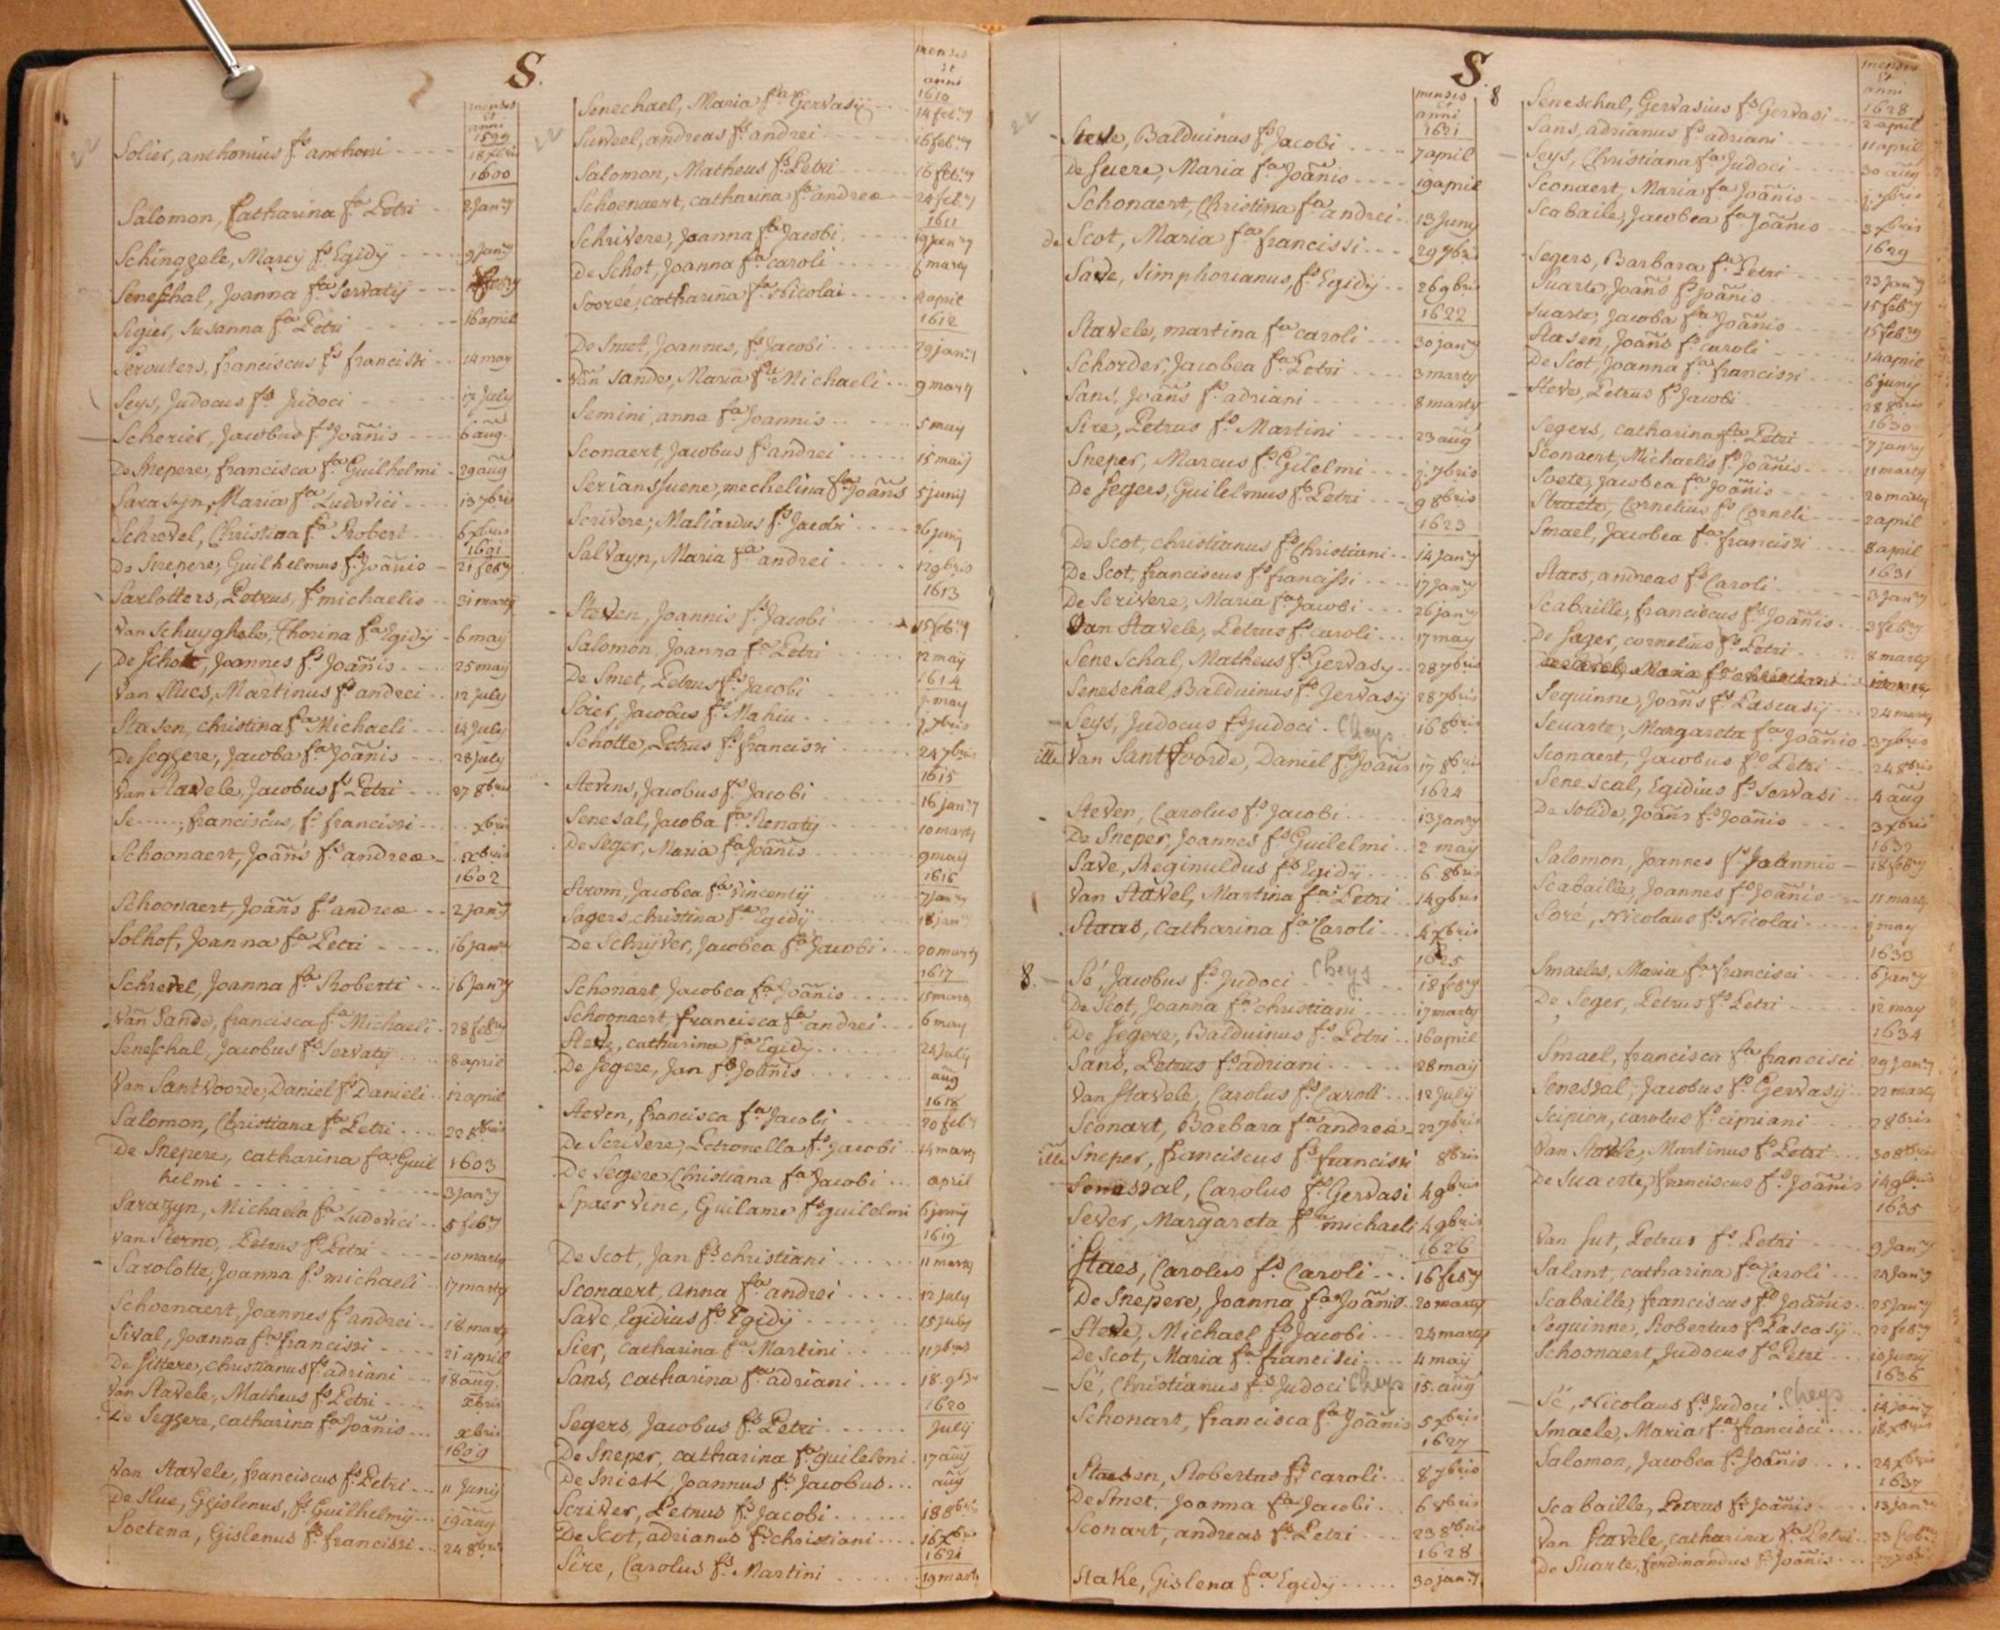 S.
menses
et
anni
1599
Solier, anthonius fs anthoni 18 xbris
1600
Salomon, Catharina fa Petri 2 Jany
Schingzele, Marij fs Egidij 9 Jany
Seneschal, Joanna fa Servatij
Sigier, Susanna fa Petri 16 april
Serouters, franciscus fs francisci 14 may
Seys, Judocus fs Judoci 17 July
Scherier, Jacobus fs Joãnis 6 aug
De Snepere, francisca fa Guilhelmi 29 aug
Sarasyn, Maria fa Ludovici 13 7bris
Schrevel, Christina fa Robert 6 xbris
1601
De Snepere, Guilhelmus fs Joãnis 21 feby
Sarlotters, Petrus, fs michaelis 31 marty
Van Schuyghele, Thorina fa Egidij 6 may
De Schott, Joannes fs Joãnis 25 may
Van Slues, Martinus fs andrei 12 July
Stasen, christina fa Michaeli 14 July
De Segzere, Jacoba fa Joãnis 28 July
Van Stavele, Jacobus fs Petri 27 8bris
Se......, franciscus, fs francisci xbris
Schoonaert, Joãns fs andreæ xbris
1602
Schoonaert, Joãns fs andreæ 2 Jany
Solhof, Joanna fa Petri 16 Jany
Schrevel, Joanna fa Roberti 16 Jany
Van Sande, francisca fa Michaeli 28 feby
Seneschal, Jacobus fs Servatij 8 april
Van Santvoorde, Daniel fs Danieli 12 april
Salomon, Christiana fa Petri 22 8bris
De Snepere, catharina fa Guil 1603
helmi 3 Jany
Sarazyn, Michaela fa Ludovici 5 feby
Van Sterne, Petrus fs Petri 10 marty
Sarolotte, Joanna fs michaeli 17 marty
Schoenaert, Joannes fs andrei 18 marty
Sival, Joanna fa francisci 21 april
De Sittere, christianus fs adriani 18 aug.
Van Stavele, Matheus fs Petri xbris
De Segzere, catharina fa Joãnis xbris
1609
Van Stavele, franciscus fs Petri 11 Junij
De Slue, Gzislenus, fs Guilhelmij 19 aug
Soetena, Gislenus fs francisci 24 8bris
menses
et
anni
1610
Senechael, Maria fa Gervasij 14 feby
Surveel, andreas fs andrei 16 feby
Salomon, Matheus fs Petri 16 feby
Schoenaert, catharina fa andreæ 24 feby
1611
Schrivere, Joanna fa Jacobi 19 Jany
De Schot, Joanna fa caroli 6 marty
Sooreé, catharina fa Nicolai 2 april
1612
De Smet, Joannes, fs Jacobi 29 jany
Van Sande, Maria fa Michaeli 9 marty
Semini, anna fa Joannis 5 may
Sconaert, Jacobus fs andrei 15 maij
Serianssuene, mechelina fa Joãns 5 junij
Scrivere, Maliardus fs Jacobi 26 junij
Salvayn, Maria fa andrei 12 9bris
1613
Steven, Joannis fs Jacobi 15 feby
Salomon, Joanna fa Petri 12 maij
1614
De Smet, Petrus fs Jacobi 1 may
Soier, Jacobus fs Mahiu 2 7bris
Schotte, Petrus fs francisci 24 7bris
1615
Stevens, Jacobus fs Jacobi 16 jany
Senesal, Jacoba fa Renatij 10 marty
De Seger, Maria fa Joãnis 9 maij
1616
Strom, Jacobea fa Vincentij 7 jany
Sagers christina fa Egidij 18 jany
De Schryver, Jacobea fa Jacobi 20 marty
1617
Schonaet, Jacobea fa Joãnis 15 marty
Schoonaert francisca fa andrei 6 may
Steve, catharina fa Egidij 24 July
De Segere, Jan fs Joãnis aug
1618
Steven, francisca fa Jacobi 20 feby
De Scrivere, Petronella fa Jacobi 14 marty
De Segere Christiana fa Jacobi april
Spaer vinc, Guilame fs guilelmi 6 junij
1619
De Scot, Jan fs christiani 11 marty
Sconaert, anna fa andrei 12 July
Save, Egidius fs Egidij 15 July
Sier, catharina fa Martini 11 7bris
Sans, catharina fa adriani 18 9bris
1620
Segers, Jacobus fs Petri July
De Sneper, catharina fa guilelmi 17 aug
De Sniek Joannus fs Jacobus aug
Scriver, Petrus fs Jacobi 18 8bris
De Scot, adrianus fs christiani 16 xbris
1621
Sire, Carolus fs Martini 19 marty
S.
menses
et
anni
1621
Steve, Balduinus fs Jacobi 7 april
De Suere, Maria fa Joãnis 19 april
Schonaert, Christina fa andrei 13 Juny
de Scot, Maria fa francisci 29 7bris
Save, Simphorianus, fs Egidij 26 9bris
1622
Stavele, martina fa caroli 30 jany
Schorder, Jacobea fa Petri 3 marty
Sans, Joãns fs adriani 8 marty
Sire, Petrus fs Martini 23 aug
Sneper, Marcus fs Gilelmi 1 7bris
De Segers, Guilelmus fs Petri 9 8bris
1623
De Scot, christianus fs Christiani 14 Jany
De Scot, franciscus fs francissi 17 Jany
De Scrivere, Maria fa Jacobi 26 jany
Van Stavele, Petrus fs caroli 17 may
Seneschal, Matheus fs Gervasy 28 7bris
Seneschal Balduinus fs Jervasij 28 7bris
Seys, Judocus fs Judoci. Cheys 16 8bris
ille Van Santfoorde, Daniel fs Joãns 17 8bris
1624
Steven, Carolus fs Jacobi 13 jany
De Sneper, Joannes fs Guilelmi 2 may
Save, Reginuldus fs Egidij 6 8bris
Van Stavel, Martina fa Petri 14 9bris
Staas, Catharina fa Caroli 4 xbris
1625
8. Sé, Jacobus fs Judoci Cheys 18 feby
De Scot, Joanna fa christiani 17 marty
De Segere, Balduinus fs Petri 16 april
Sans, Petrus fs adriani 28 maij
Van Stavele, Carolus fs Caroli 12 July
Sconart, Barbara fa andreæ 22 7bris
ille Sneper, franciscus fs francisci 8bris
Senessal, Carolus fs Gervasi 4 9bris
Sever, Margareta fa michaeli 4 9bris
1626
Staes, Carolus fs Caroli 16 feby
De Snepere, Joanna fa Joãnis 20 marty
Steve, Michael fs Jacobi 24 marty
De Scot, Maria fa francisci 4 maij
Sé, Christianus fs Judoci Cheys 15 aug
Schonart, francisca fa Joãnis 5 xbris
1627
Staesen, Robertus fs caroli 8 7bris
De Smet, Joanna fa Jacobi 6 8bris
Sconart, andreas fs Petri 23 8bris
1628
Stake, Gislena fa Egidij 30 jany
menses
et
anni
1628
8 Seneschal, Gervasius fs Gervasi 2 april
Sans, adrianus fs adriani 11 april
Seys, Christiana fa Judoci 30 aug
Sconaert, Maria fa Joãnis 1 7bris
Scabaile, Jacobea fa Joãnis 3 xbris
1629
Segers, Barbara fa Petri 23 Jany
Suarte, Joãns fs Joãnis 15 feby
Suarte, Jacoba fa Joãnis 15 feby
Stasen, Joãns fs caroli 14 april
De Scot, Joanna fa francisci 6 junij
Steve, Petrus fs Jacobi 28 8bris
1630
Segers, catharina fa Petri 7 jany
Sconaert, Michaelis fs Joãnis 11 marty
Soete, Jacobea fa Joãnis 20 marty
Straete, Cornelius fs Corneli 2 april
Smael, Jacobea fa francisci 8 april
1631
Staes, andreas fs Caroli 3 Jany
Scabaille, franciscus fs Joãnis 3 feby
De Sager, cornelius fs Petri 8 marty
Sequinne, Joãns fs Pascasij 24 marty
Seuarte, Margareta fa Joãnis 3 7bris
Sconaert, Jacobus fs Petri 24 8bris
Senescal, Egidius fs Servasi 4 aug
De Soude, Joãns fs Joãnis 3 xbris
1632
Salomon, Joannes fs Joannis 18 feby
Scabaille, Joannes fs Joãnis 11 marty
Soré, Nicolaus fs Nicolai 1 may
1633
Smaeles, Maria fa francisci 6 jany
De Seger, Petrus fs Petri 12 may
1634
Smael, francisca fa francisci 29 jany
Senessal, Jacobus fs Gervasij 22 marty
Scipion, carolus fs cipriani 2 8bris
Van Stavele, Martinus fs Petri 30 8bris
De Suaerte, franciscus fs Joãnis 14 9bris
1635
Van Sut, Petrus fs Petri 9 Jany
Salant, catharina fa Caroli 24 Jany
Scabaille, franciscus fs Joãnis 25 jany
Sequinne, Robertus fs Pascasij 22 feby
Schoonaert, Judocus fs Petri 10 junij
1636
Sé, Nicolaus fs Judoci Cheys 14 jany
Smaele, Maria fa francisci 18 xbris
Salomon, Jacobea fa Joãnis 24 xbris
1637
Scabaille, Petrus fs Joãnis 13 jany
Van Stavele, catharina fa Petri 23 feby
De Suarte, ferdinandus fs Joãnis